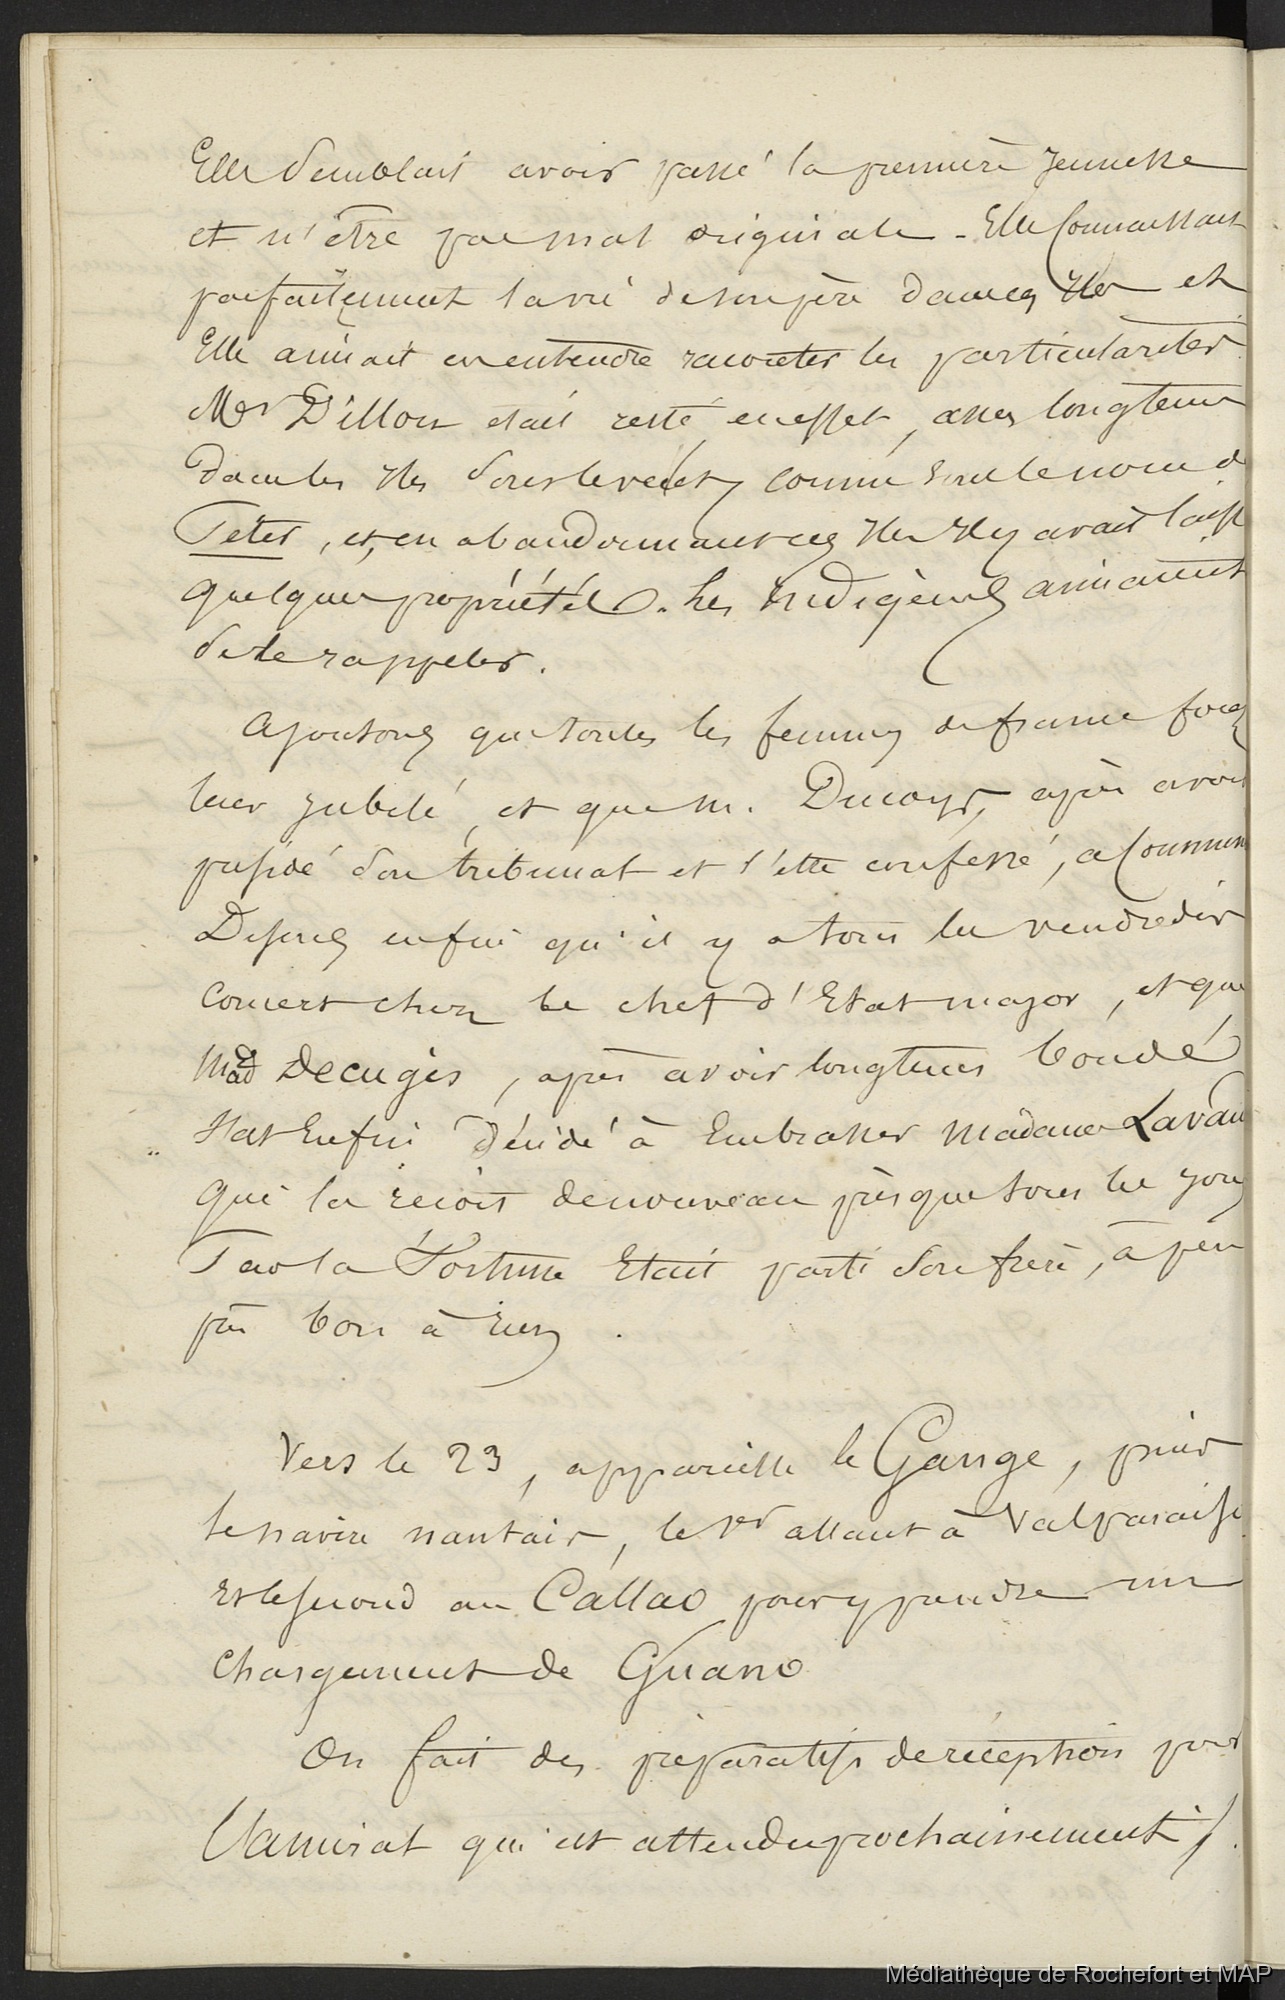 Elle semblait avoir passé la première jeunesse
et n'être pas mal originale - Elle connaissait
parfaitement la vie de son père dans ces Iles et
Elle aimait en entendre raconter les particularités
Mr Dillon était resté, en effet, assez longtems
dans les Iles sous le vent, connu sous le nom de
Péter, et, en abandonnant ces Iles Il y avait laissé
quelques propriétés. Les Indigènes aimaient
se le rappeler.
Ajoutons que toutes les femmes de france font
leur jubilé, et que m. Ducouys, après avoir
présidé son tribunal et s'être confessé, a communié
Disons enfin qu'il y a tous les vendredis
Concert chez le chef d'Etat major, et que
Mad Decugis, après avoir longtems boudé
s'est Enfin décidé à Embrasser Madame Lavaud
qui la reçoit de nouveau presque tous les jours
Par la Fortune Etait parti son frère, à peu
près bon à rien.
Vers le 23, appareille le Gange, puis
le navire nantais, le 1er allant à Valparaiso
et le second au Callao pour y prendre un
chargement de Guano
On fait des préparatifs de réception pour
l'amiral qui est attendu prochainement.
Médiathèque de Rochefort et MAP